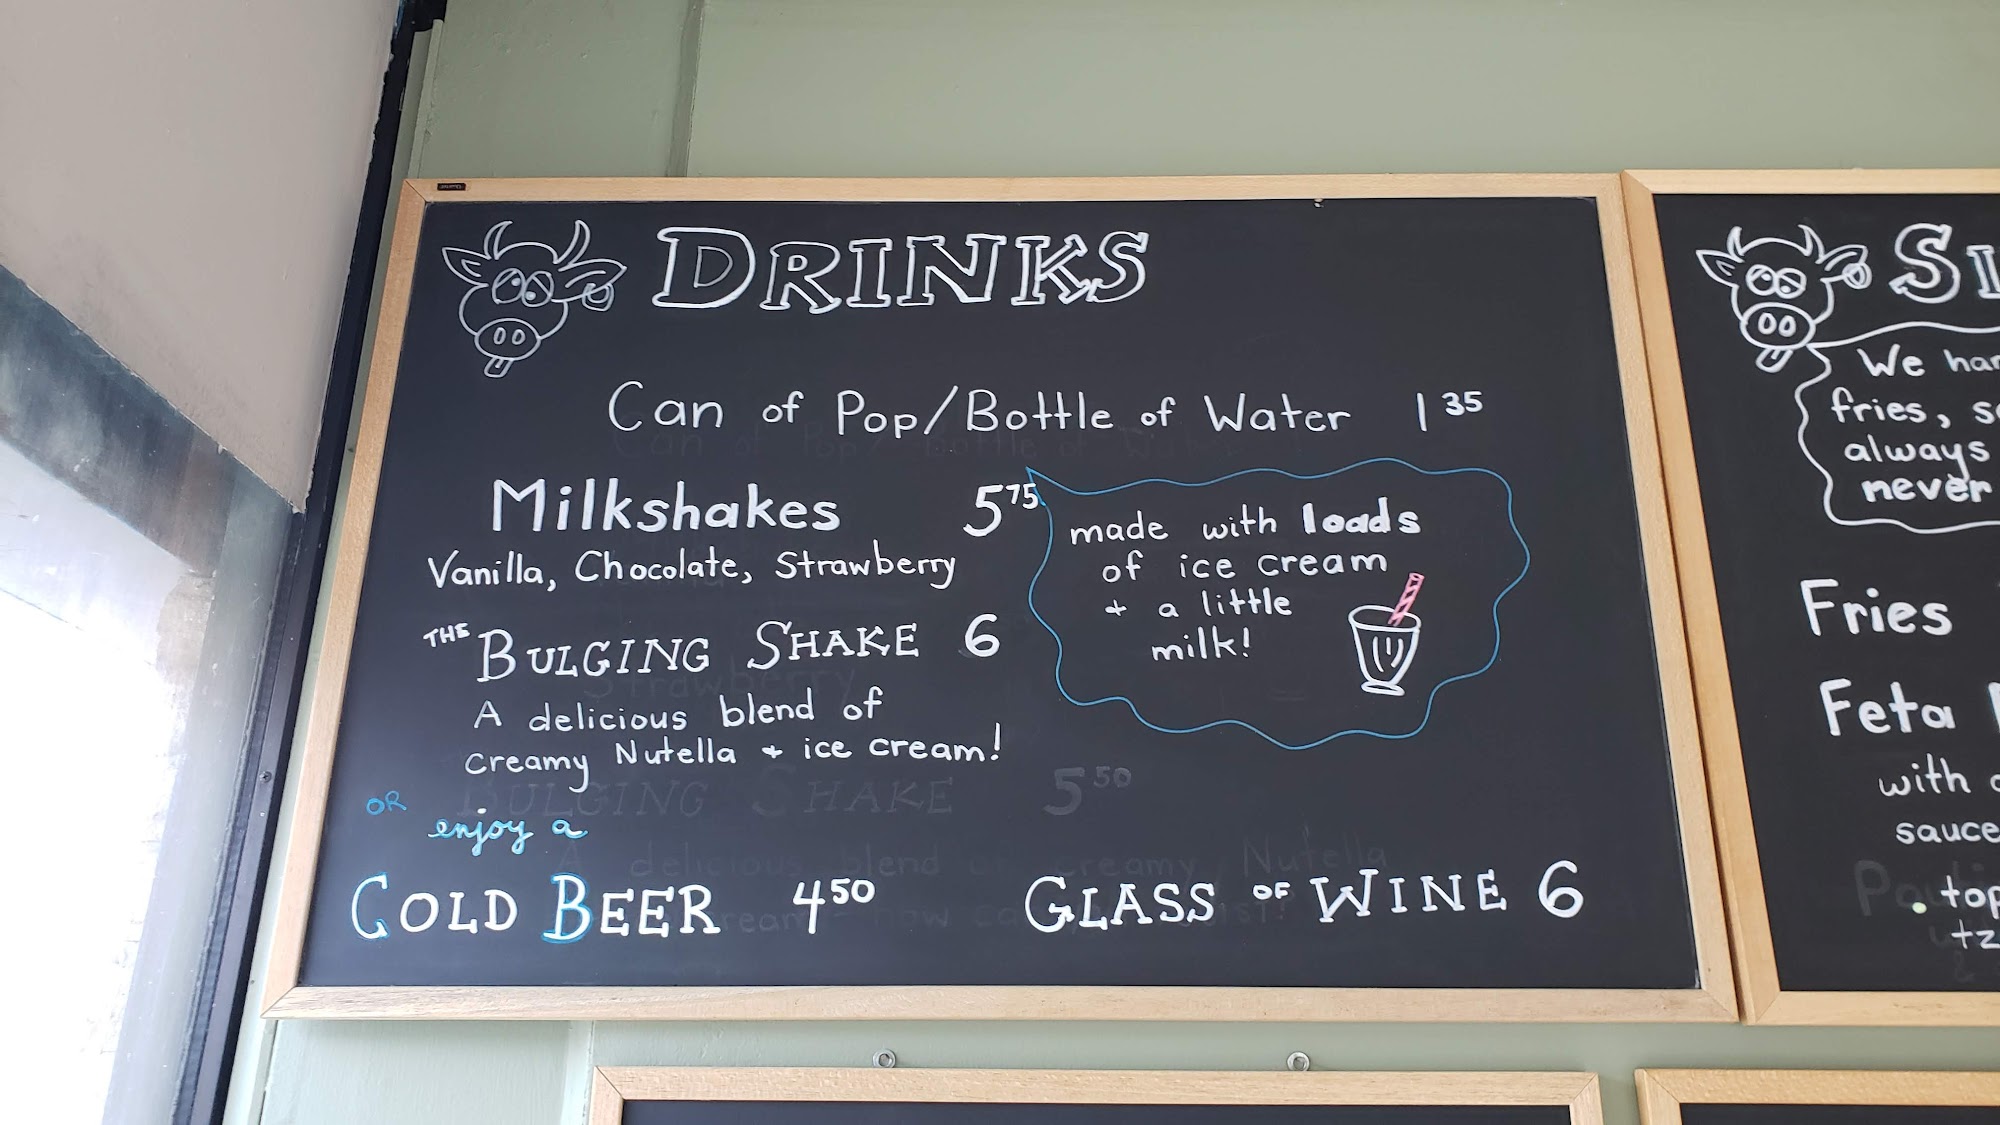 DRINKS
Can of Pop/Bottle of Water 1 35
Milkshakes 5 75
Vanilla, Chocolate, Strawberry
made with loads
of ice cream
+ a little
milk!
THE BULGING SHAKE 6
A delicious blend of
creamy Nutella + ice cream!
OR enjoy a
COLD BEER 4 50
GLASS OF WINE 6
BULGING SHAKE 5 50
A delicious blend of creamy Nutella
We
fries,
always
never
Fries
Feta
with
sauce